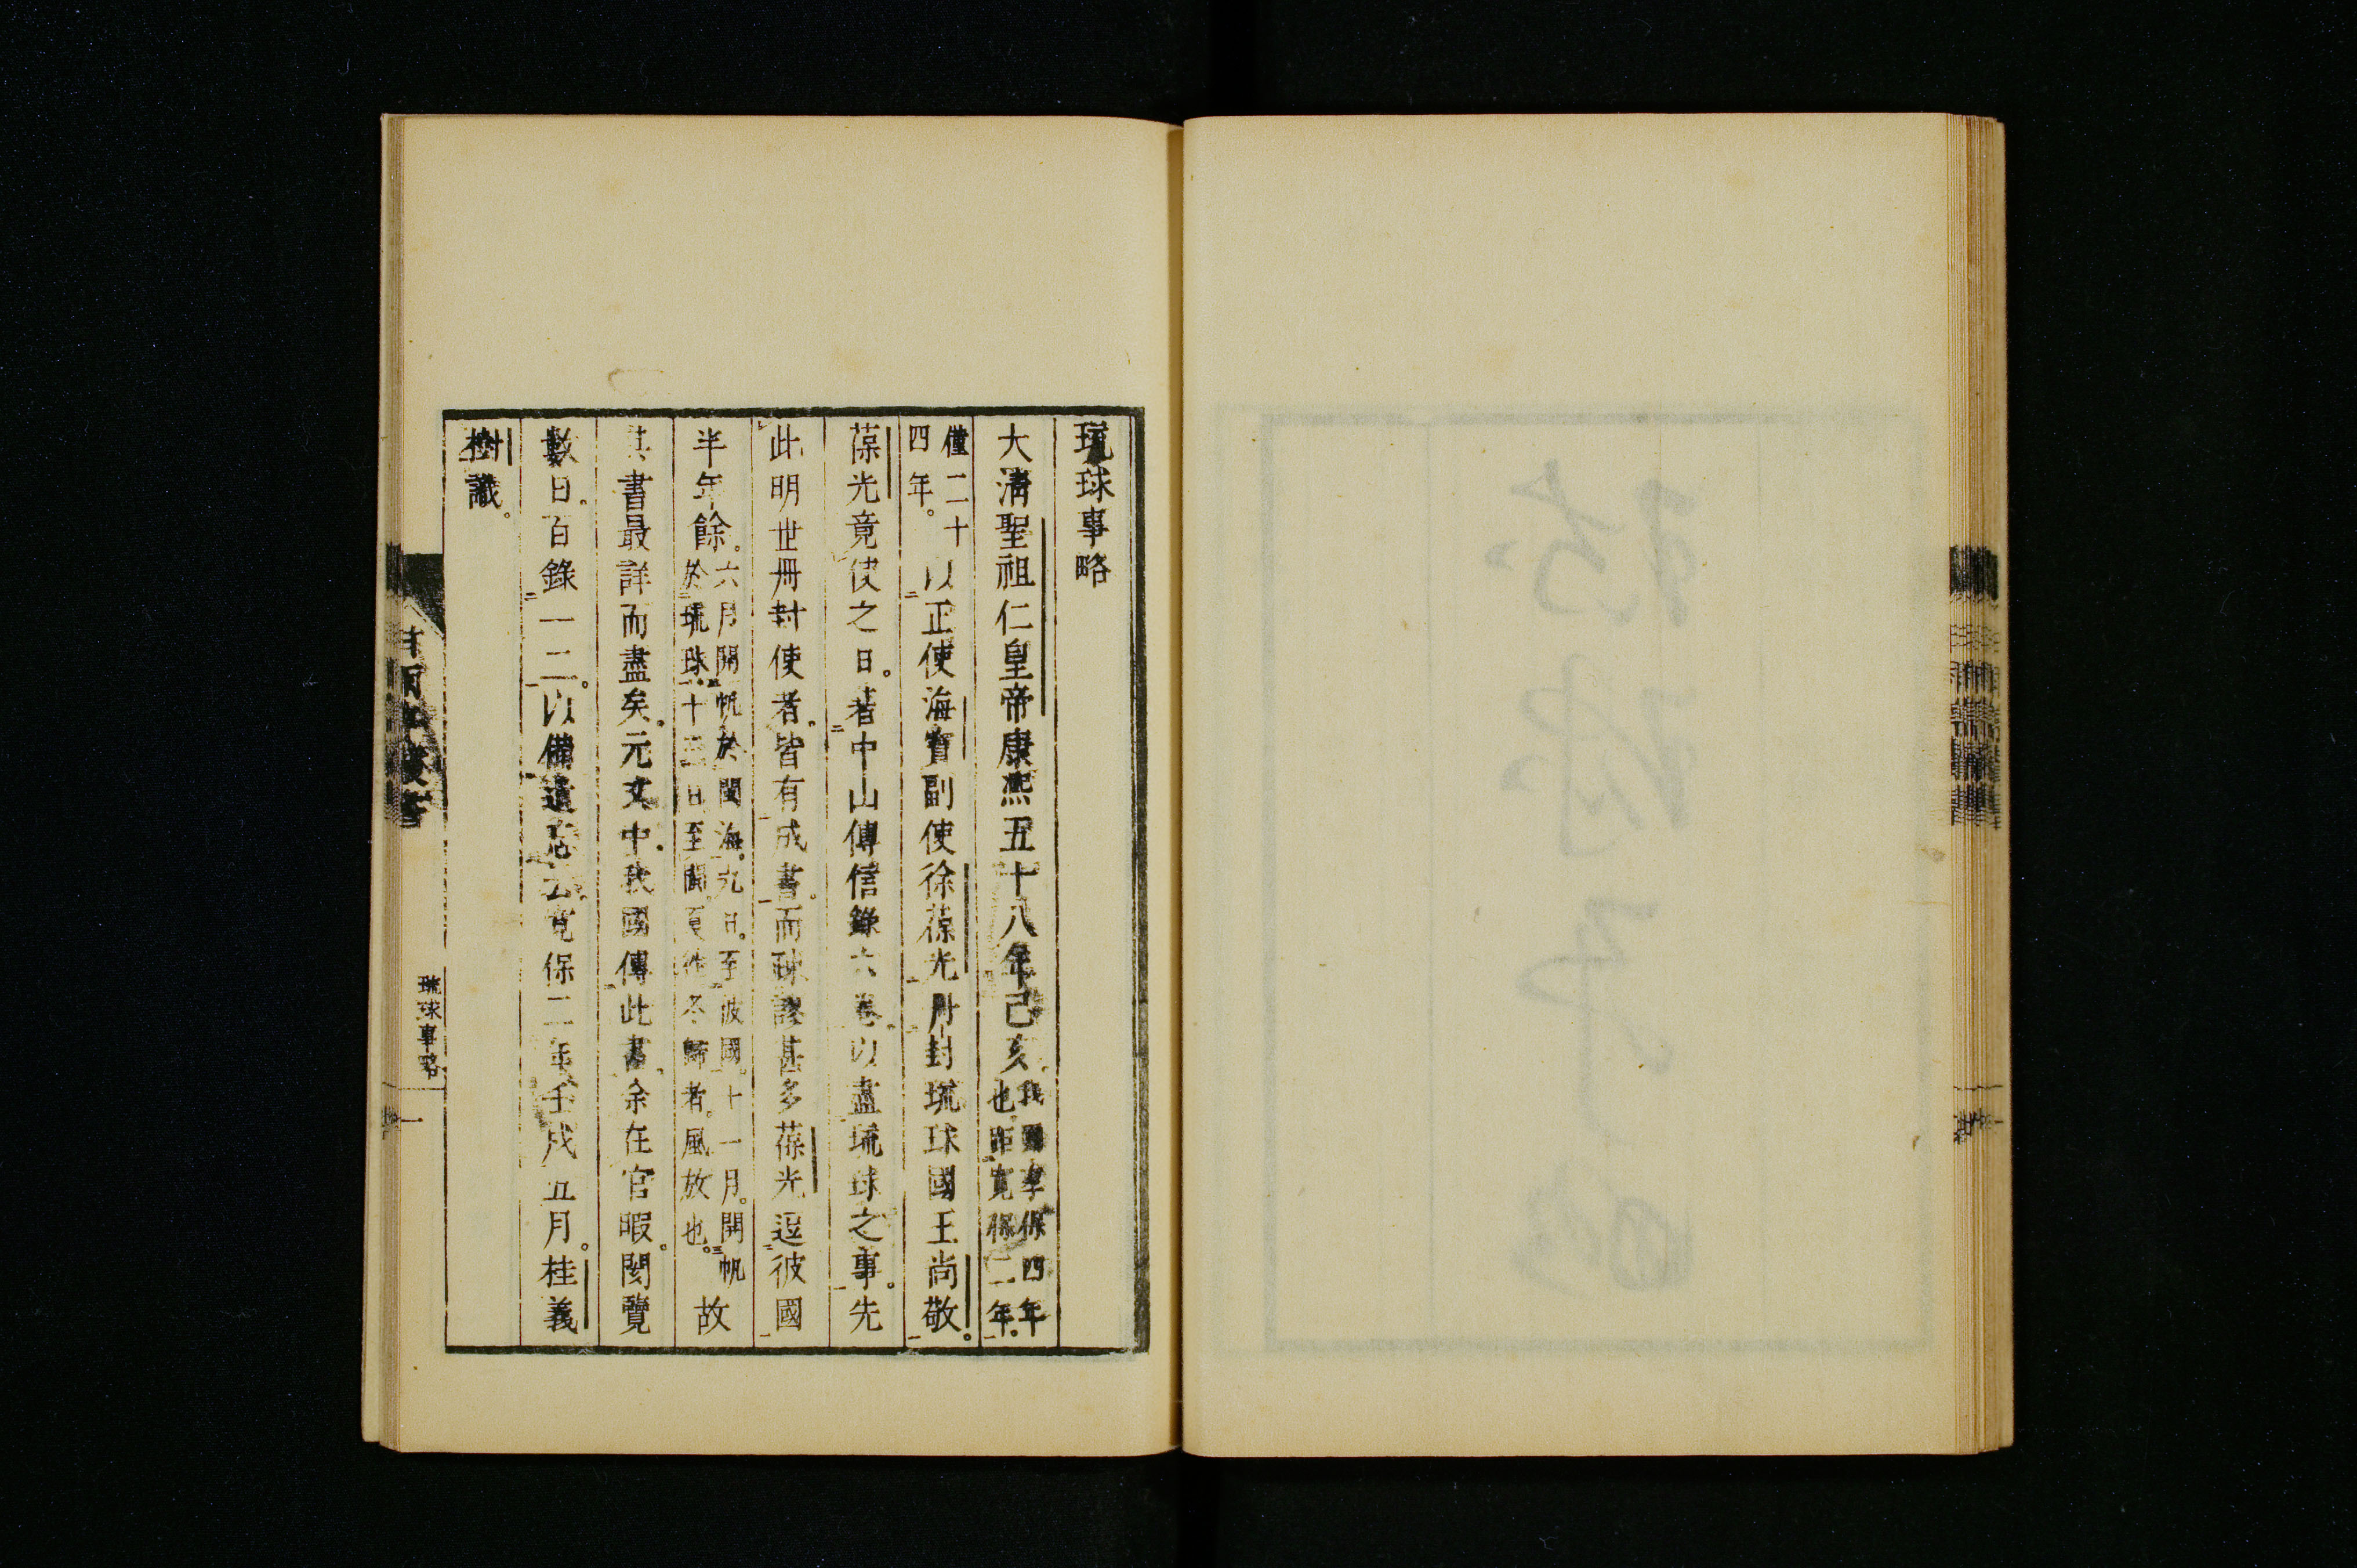 琉球事略
大清聖祖仁皇帝康熙五十八年己亥我國享保四年也距寬保二年
僅二十四年。以正使海寶副使徐葆光册封琉球國王尚敬。
葆光竟使之日。著中山傳信錄六卷。以盡琉球之事。先
此明世冊封使者。皆有成書。而球謬甚多葆光逗彼國
半年餘。六月開帆於閩海。九日。至彼國。十一月。開帆於琉球。十三日至閩。夏往冬歸者。風放也。故
其書最詳而盡矣。元文中。我國傳此書。余在官暇。閱覽
數日。百錄一二。以備遺忘云。寬保二年壬戌五月。桂義
樹識。
琉球事略
一